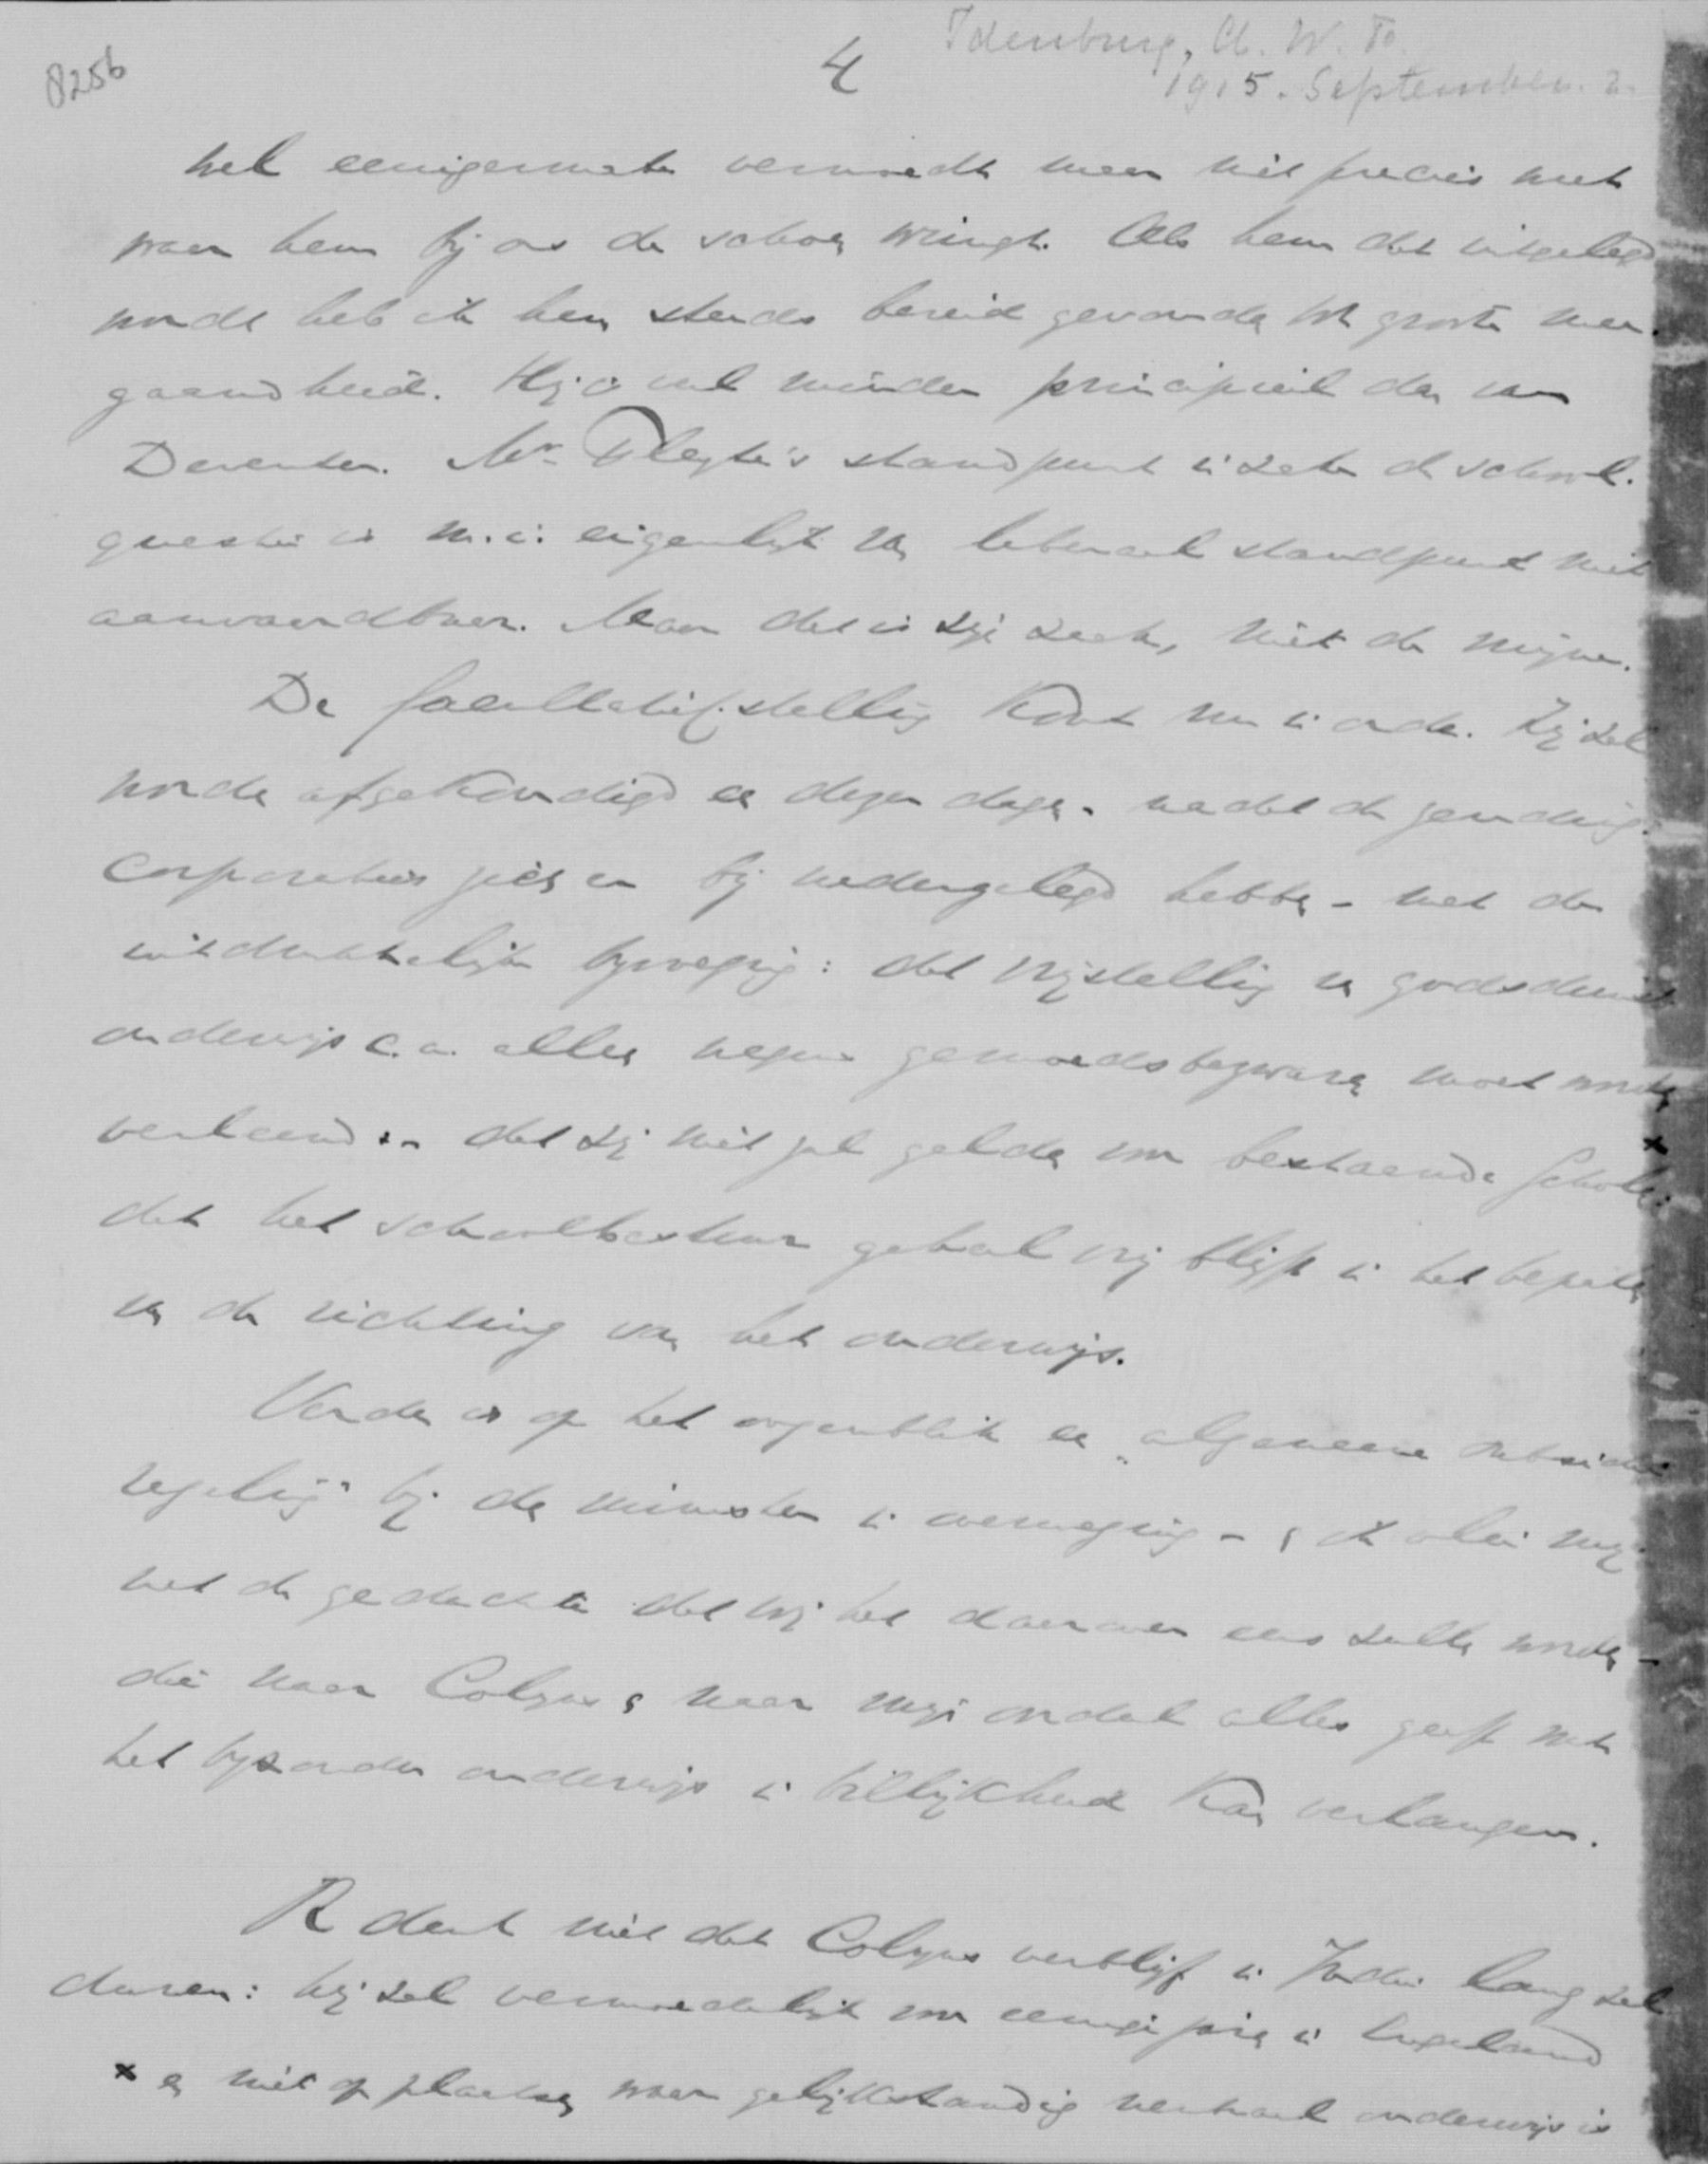 8256
4
Idenburg, A. W. F.
1915. September. 2.
wel eenigermate vermoedt maar niet precies weet
waar hem bij ons de schoen wringt. Als hem dat uitgelegd
wordt heb ik hem steeds bereid gevonden tot groote mee-
gaandheid. Hij is veel minder principieel dan van
Deventer. Mr. Pleyte's standpunt in zake de school-
questie is m.i. eigenlijk van liberaal standpunt niet
aanvaardbaar. Maar dat is zijn zaak, niet de mijne.
De facultatiefstelling komt nu in orde. Zij zal
worden afgekondigd een dezer dagen - nadat de zendings-
corporaties zich er bij nedergelegd hebben - met de
uitdrukkelijke bijvoeging: dat vrijstelling van godsdienst-
onderwijs c.a. alleen wegens gemoedsbezwaren moet worden
verleend en dat zij niet zal gelden voor bestaande scholen: x
dat het schoolbestuur geheel vrij blijft in het bepalen
van de richting van het onderwijs.
Verder is op het oogenblik een "algemeene subsidie
regeling" bij den minister in overweging - en ik vlei mij
met de gedachte dat wij het daarover eens zullen worden -
die naar Colijns en naar mijn oordeel alles geeft wat
het bijzonder onderwijs in billijkheid kan verlangen.
Ik denk niet dat Colijns verblijf in Indië lang zal
duren: hij zal vermoedelijk voor eenige jaren in Engeland
x en niet op plaatsen waar gelijkstandig neutraal onderwijs is